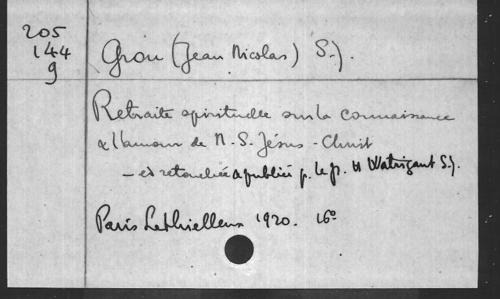 205
144
g
Grou (Jean Nicolas) S.J.
Retraite spirituelle sur la connaissance
& l'amour de N. S. Jésus-Christ
— ed retouchée & publiée p. le p. H Watrigant S.J.
Paris Lethielleux 1920. 16°